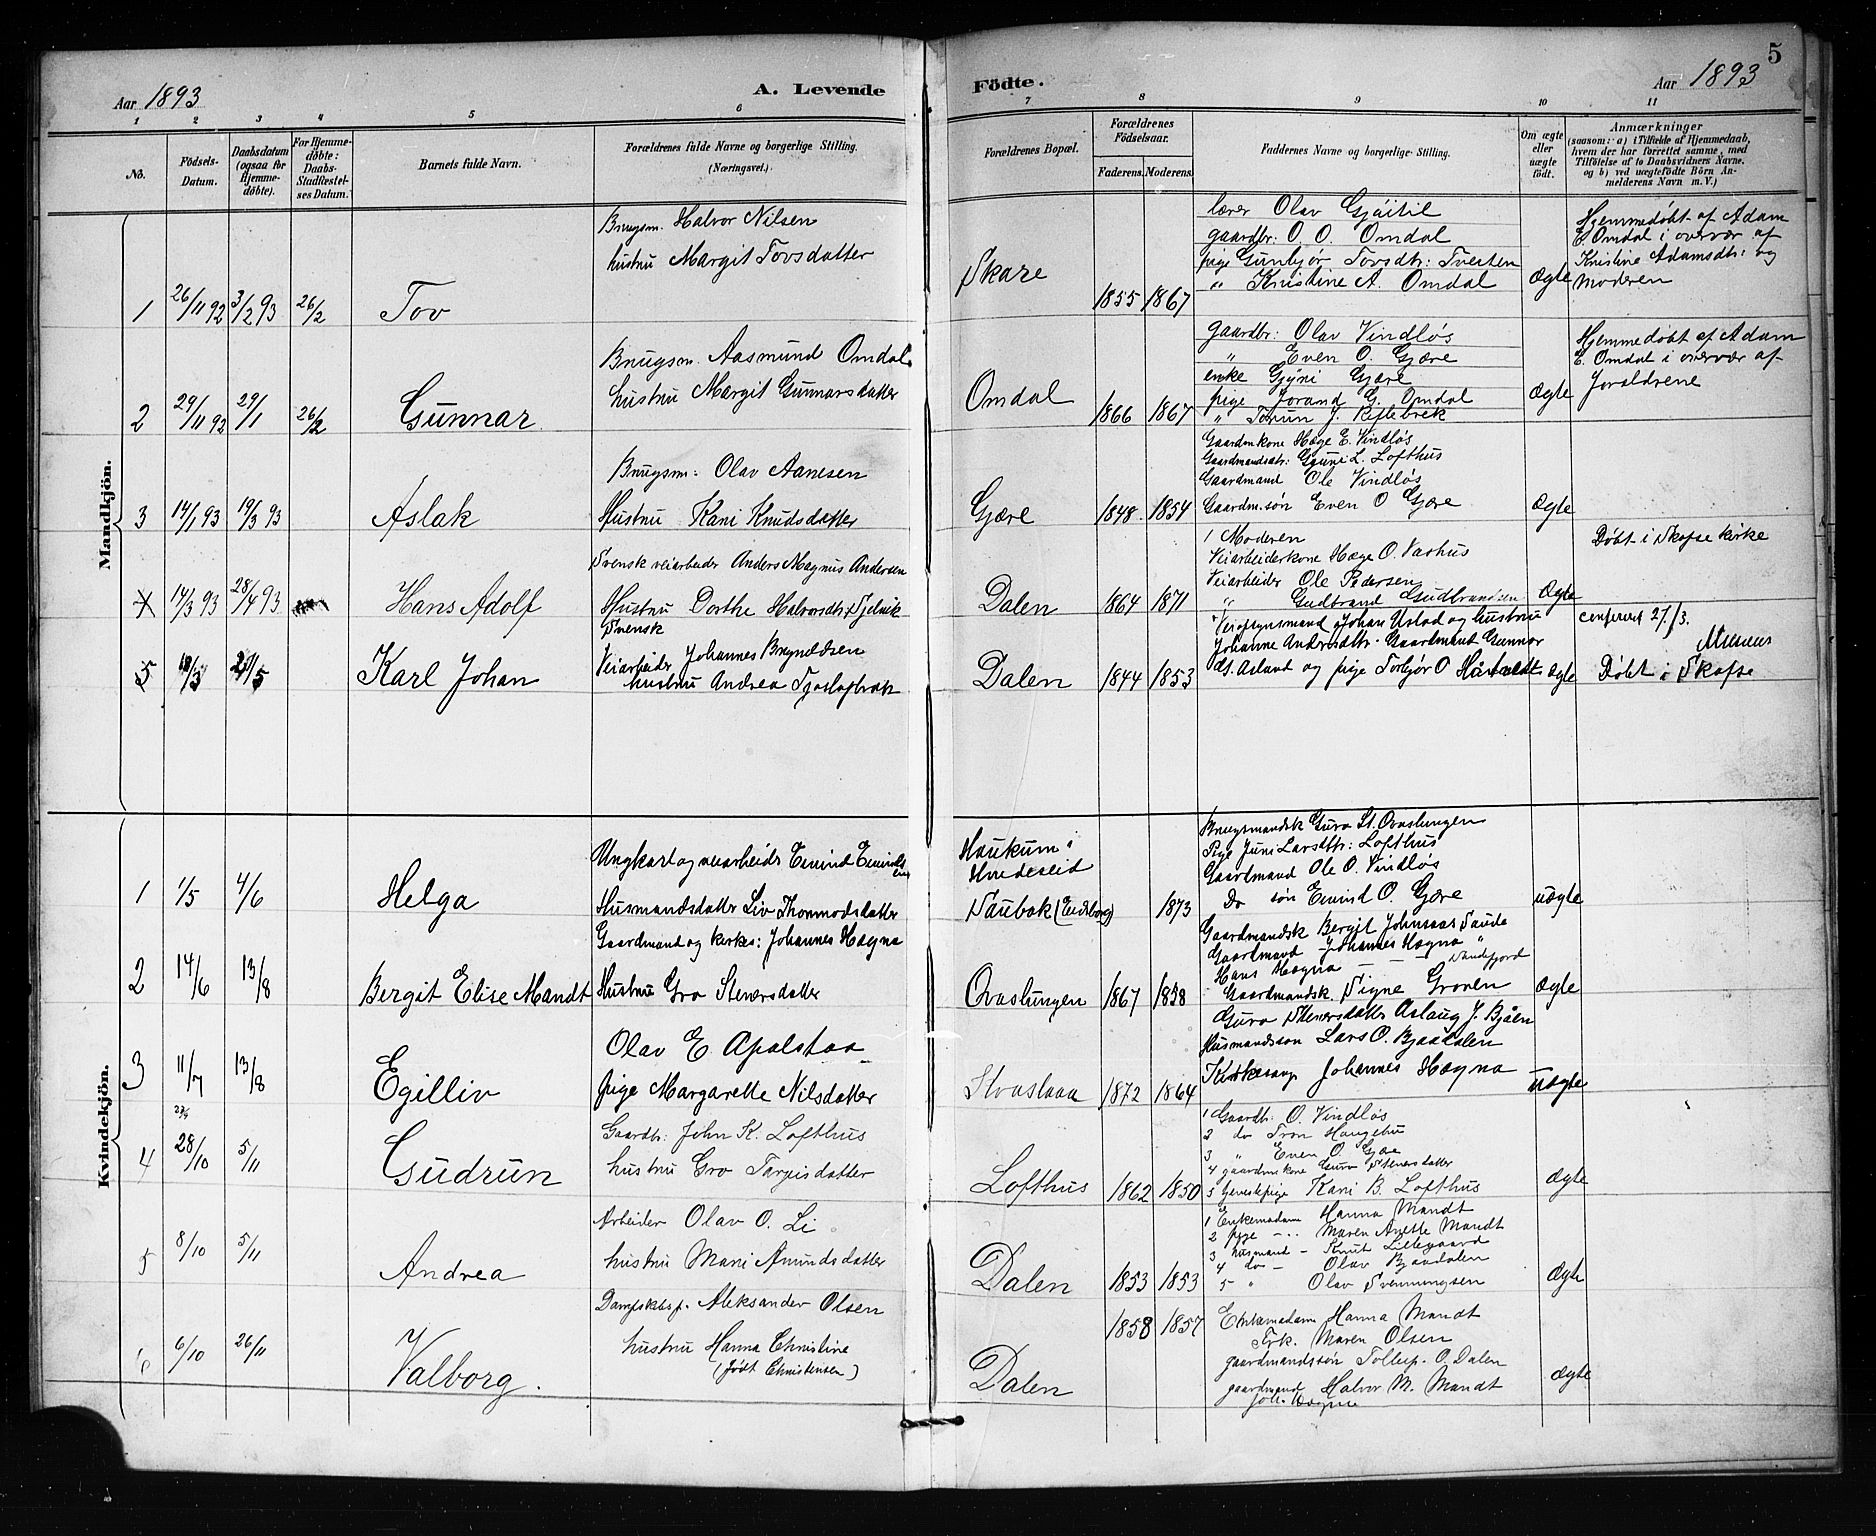 5
Aar 1893
A. Levende
Födte.
Aar 1893
1 2 3 4 5 6 7 8 9 10 11
No.
Födsels-
Datum.
Daabsdatum
(ogsaa for
Hjemme-
döbte).
For Hjemme-
döbte:
Daabs-
Stadfæstel-
ses Datum.
Barnets fulde Navn.
Forældrenes fulde Navne og borgerlige Stilling.
(Næringsvei.)
Forældrenes Bopæl.
Forældrenes
Födselsaar.
Faderens. Moderens.
Faddernes Navne og borgerlige Stilling.
Om ægte
eller
uægte
födt.
Anmærkninger
(saasom: a) i Tilfælde af Hjemmedaab,
hvem der har forrettet samme, med
Tilföielse af to Daabsvidners Navne.
og b) ved uægtefödte Börn An-
melderens Navn m. V.)
Mandkjön.
1 26/11 92 3/2 93 26/2 Tov
Brugsm. Halvor Nilsen
hustru Margit Tovsdatter
Skare 1855 1867
lærer Olav Gjøitil
gaardbr: O. O. Omdal
pige Gunbjør Tovsdtr: Tveiten
" Kristine A. Omdal
Ægte
Hjemmedøbt af Adam
E. Omdal i overvær af
Kristine Adamsdtr: og
Moderen
2 29/11 92 29/1 26/2 Gunnar
Brugsm. Aasmund Omdal
hustru Margit Gunnarsdatter
Omdal 1866 1867
gaardbr: Olav Vindløs
" Even O. Gjære
enke Gjyri Gjære
pige Jorand G. Omdal
" Torun J. Riflebrek
Ægte
Hjemmedøbt af Adam
E. Omdal i overvær af
Foraldrene
3 14/1 93 19/3 93 Aslak
Brugsm: Olav Aanesen
Hustru Kari Knudsdatter
Gjære 1848 1854
Gaardmkone Hæge E. Vindløs
Gaardmandsdtr: Gjuni L. Lofthus
Gaardmand Ole Vindløs
Gaardm.søn Even O Gjære
Ægte
4 14/3 93 28/4 93 Hans Adolf
Svensk veiarbeider Anders Magnus Andersen
Hustru Dorthe Halvorsdtr.
Dalen 1864 1871
1 Moderen
Veiarbeiderkone Hæge O. Vashus
Veiarbeider Ole Pedersen
" Gudbrand Gudbrandsen
Ægte
Døbt i Skafse kirke
5 18/3 21/5 Karl Johan
Svensk
Veiarbeider Johannes Bryneldsen
hustru Andrea
Dalen 1844 1853
Veiopsynsmand Johan Ustad og hustru
Johanne Andersdtr. Gaardmand Gunnar
G. Asland og pige Torbjør O
Ægte
confereret 27/3.
Døbt i Skafse
Kvindekjön.
1 1/5 4/6 Helga
Ungkarl og veiarbeider Eivind Eivindsen
Husmandsdatter Liv Thormodsdatter
Haukum i
Hvideseid
Saubok 1873
Brugsmandsk Guro St. Ovaslungen
Pige Juni Larsdtr: Lofthus
Gaardmand Ole O. Vindløs
Do søn Eivind O. Gjære
uægte
2 14/6 13/8 Bergit Elise Mandt
Gaardmand og kirkes: Johannes Hægna
Hustru Gro Steversdatter
Ovaslungen 1867 1858
Gaardmandsk Bergit Johnsaas Saude
Gaardmand Johannes Hægna "
Hans Hægna — — Sandefjord
Gaardmandsk. Signe Groven
ægte
3 11/7 13/8 Egilliv
Olav E. Apalstaa
pige Margarette Nilsdatter
Hvaslaaa 1872 1864
Guro Steversdatter Aslaug J. Bjåen
Husmandssøn Lars O. Bjaadalen
Kirkesang. Johannes Hægna
uægte
4 28/10 5/11 Gudrun
Gaardbr: John K. Lofthus
hustru Gro Targeisdatter
Lofthus 1862 1850
1 Gaardbr: O. Vindløs
2 do Tron Haugehus
3 " Even O. Gjære
4 gaardmkone Guro Steversdatter
5 tjenestepige Kari B. Lofthus
Ægte
5 8/10 5/11 Andrea
Arbeider Olav O. Li
hustru Mari Amundsdatter
Dalen 1853 1853
1 Enkemadam Hanna Mandt
2 pige — Maren Anette Mandt
3 husmand — Knut Lillegaard
4 do — Olav Bjaadalen
5 " Olav Svenningsen
Ægte
6 6/10 26/11 Valborg.
Dampskbsf. Aleksander Olsen
hustru Hanna Christine
(født Christensen)
Dalen 1858 1857
Enkemadam Hanna Mandt
Frk. Maren Olsen
gaardmandssøn Tollef O. Dalen
gaardmand Halvor M. Mandt
Joh. Hægna
ægte